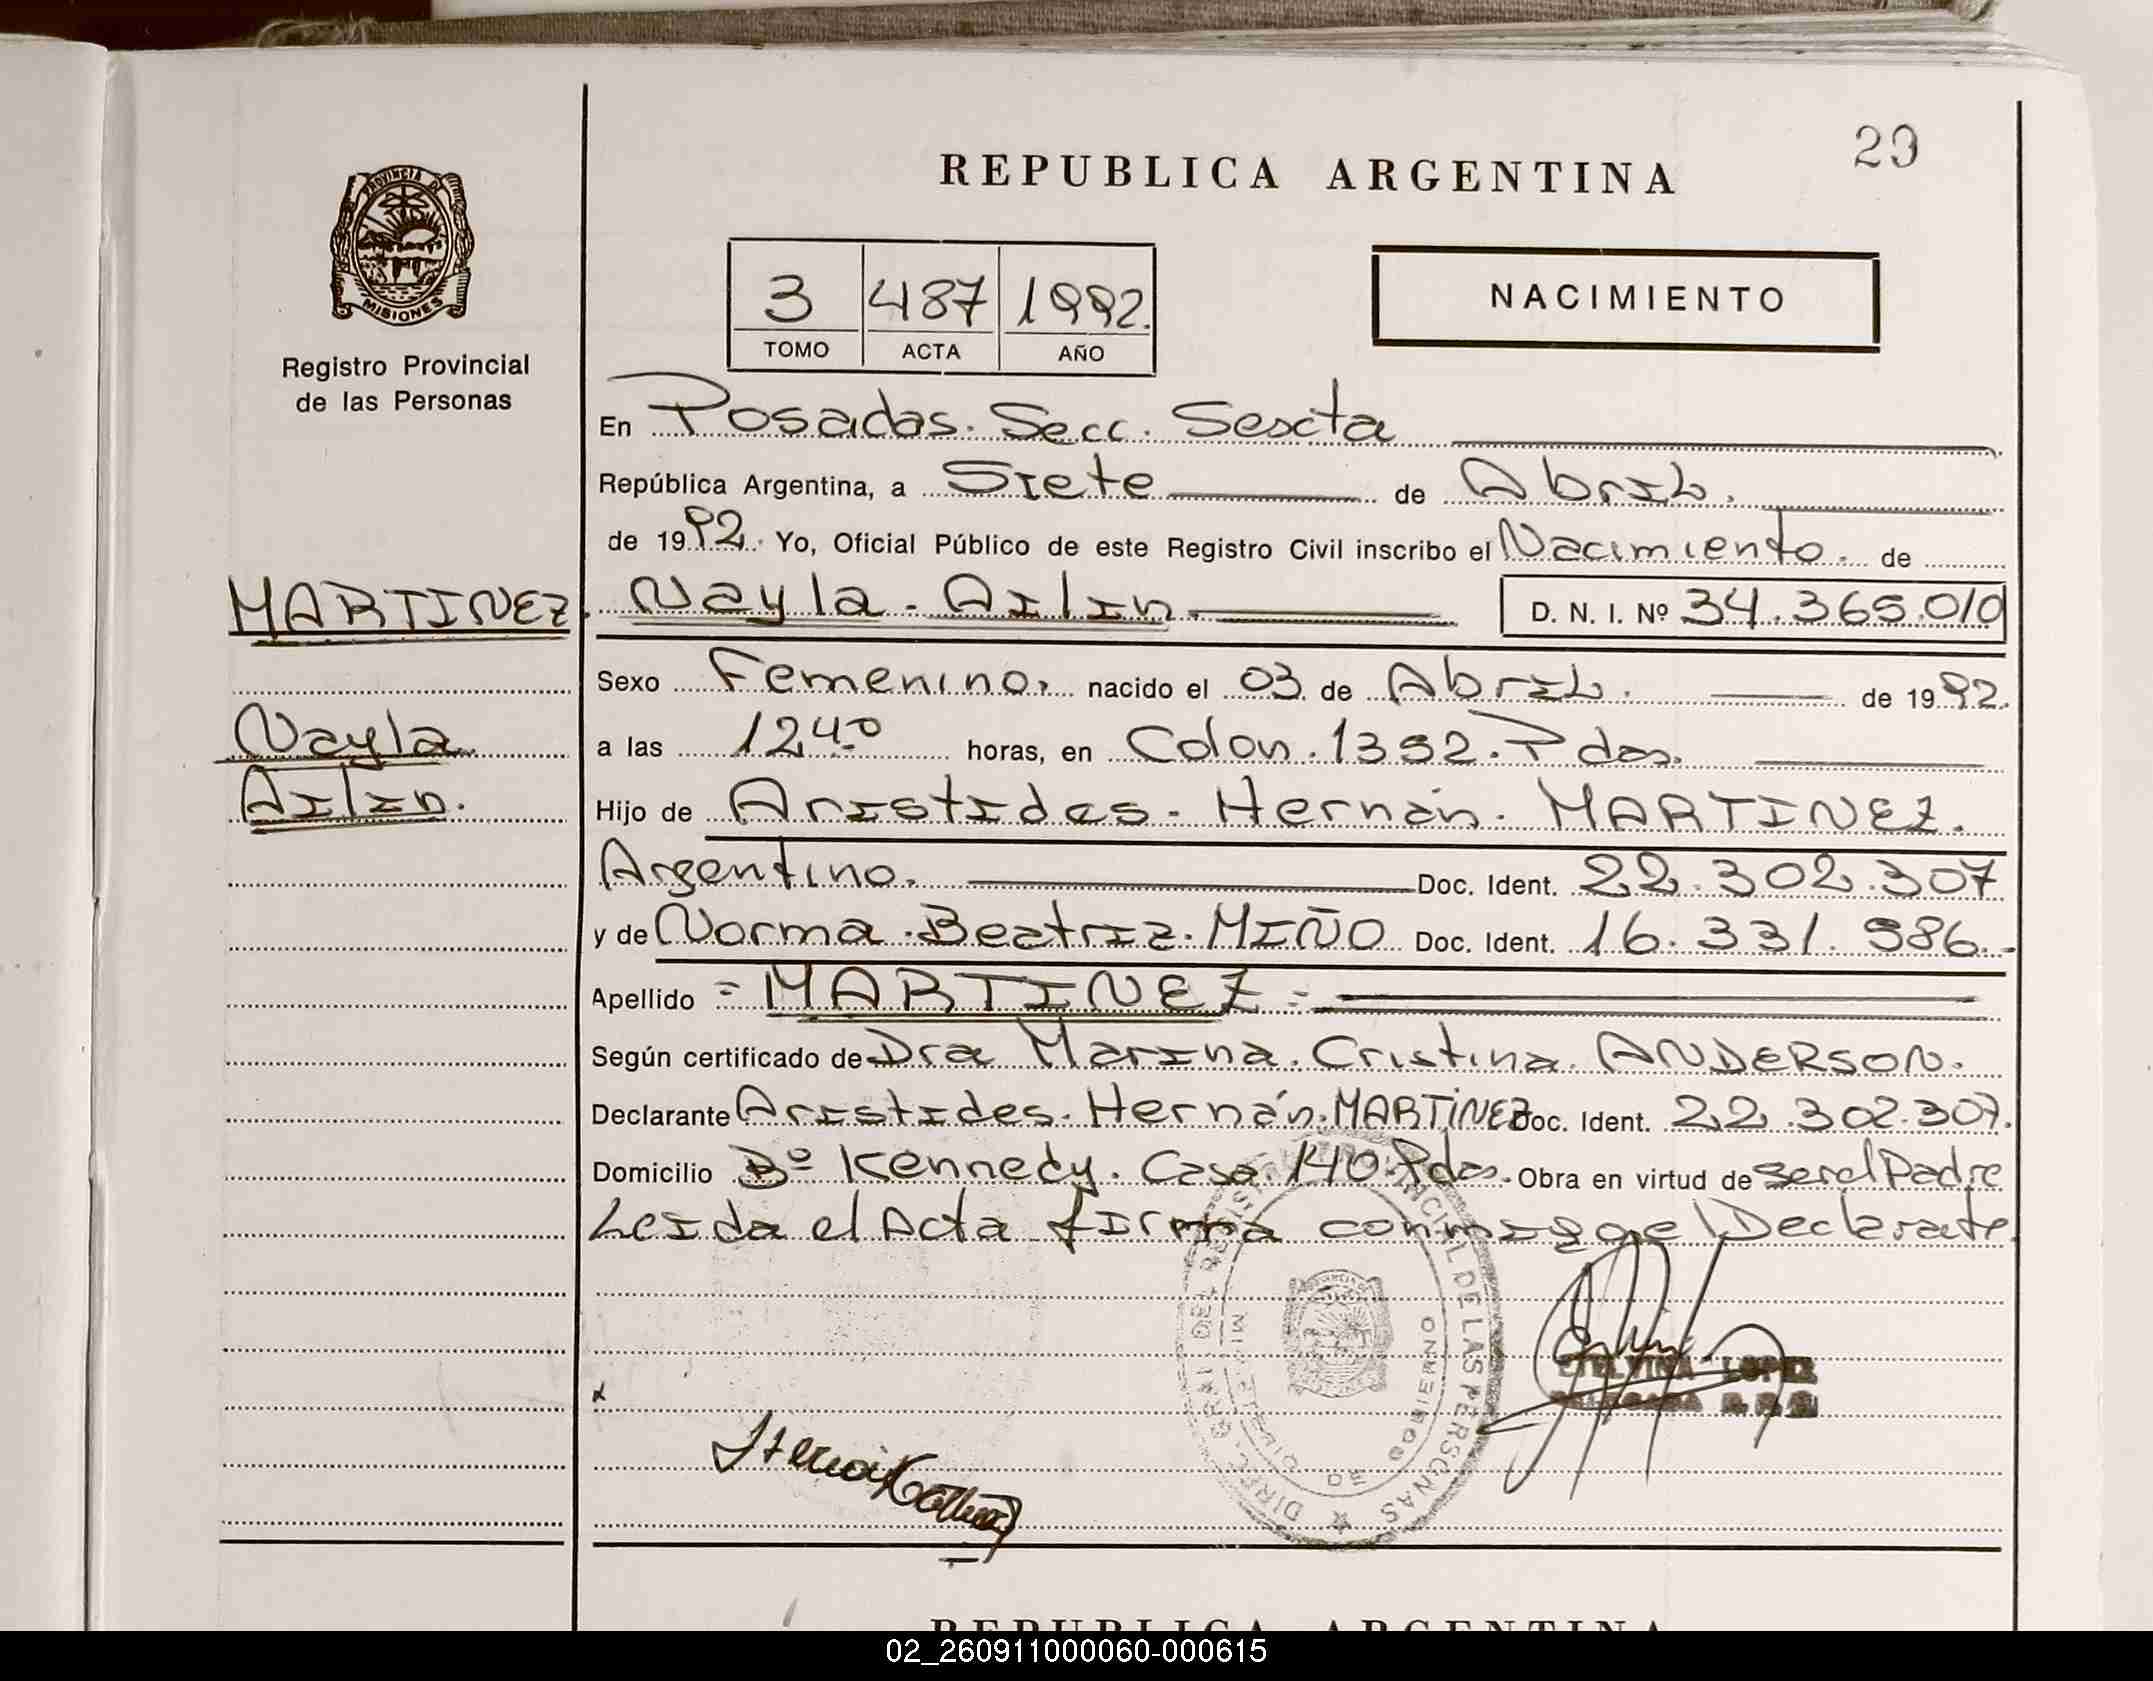 29
REPUBLICA ARGENTINA
PROVINCIA DE
MISIONES
Registro Provincial
de las Personas
3 487 1992.
TOMO ACTA AÑO
NACIMIENTO
En Posadas. Secc. Sexta
República Argentina, a Siete de Abril.
de 1992. Yo, Oficial Público de este Registro Civil inscribo el Nacimiento. de
MARTINEZ. Nayla. Ailin. D. N. I. Nº 34.365.010
Sexo Femenino. nacido el 03 de Abril. de 1992.
Nayla
a las 12 40 horas, en Colon. 1352. Pdas.
Ailin.
Hijo de Aristides. Hernán. MARTINEZ.
Argentino. Doc. Ident. 22.302.307
y de Norma. Beatriz. MIÑO Doc. Ident. 16.331.986.-
Apellido = MARTINEZ =
Según certificado de Dra Marina. Cristina. ANDERSON.
Declarante Aristides. Hernán. MARTINEZ Doc. Ident. 22.302.307.
Domicilio Bº Kennedy. Casa. 140. Pdas. Obra en virtud de ser el Padre
Leida el Acta firma conmigo el Declarante.
DIREC. GRAL DEL REGISTRO PROVINCIAL DE LAS PERSONAS
GOBIERNO
ETELVINA LOPEZ
REPUBLICA ARGENTINA
02_260911000060-000615